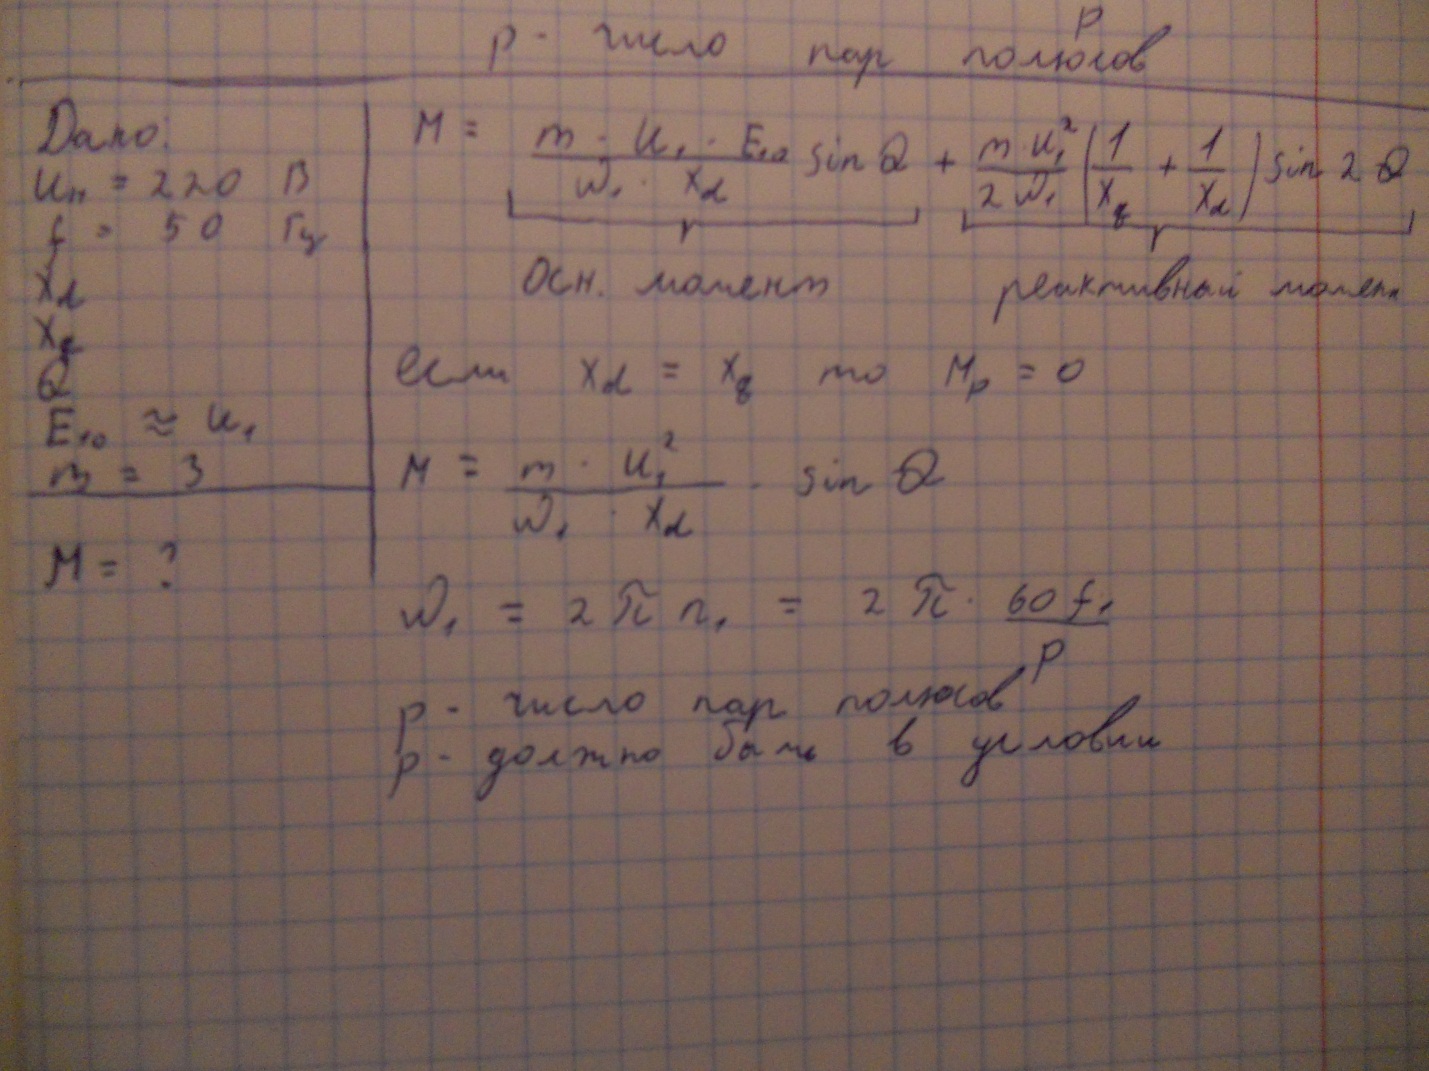 р - число пар полюсов
р
Дано:
Uн = 220 В
f = 50 Гц
Xd
Xq
Q
E₁₀ ≈ U₁
m = 3
M = ?
M = (m · U₁ · E₁₀)/(ω₁ · Xd) sin Q + (m · U₁²)/(2 ω₁) (1/Xq + 1/Xd) sin 2 Q
Осн. момент реактивный момент
если Xd = Xq то Mр = 0
M = (m · U₁²)/(ω₁ · Xd) · sin Q
ω₁ = 2 π n₁ = 2 π · (60 f₁)/р
р - число пар полюсов
р - должно быть в условии